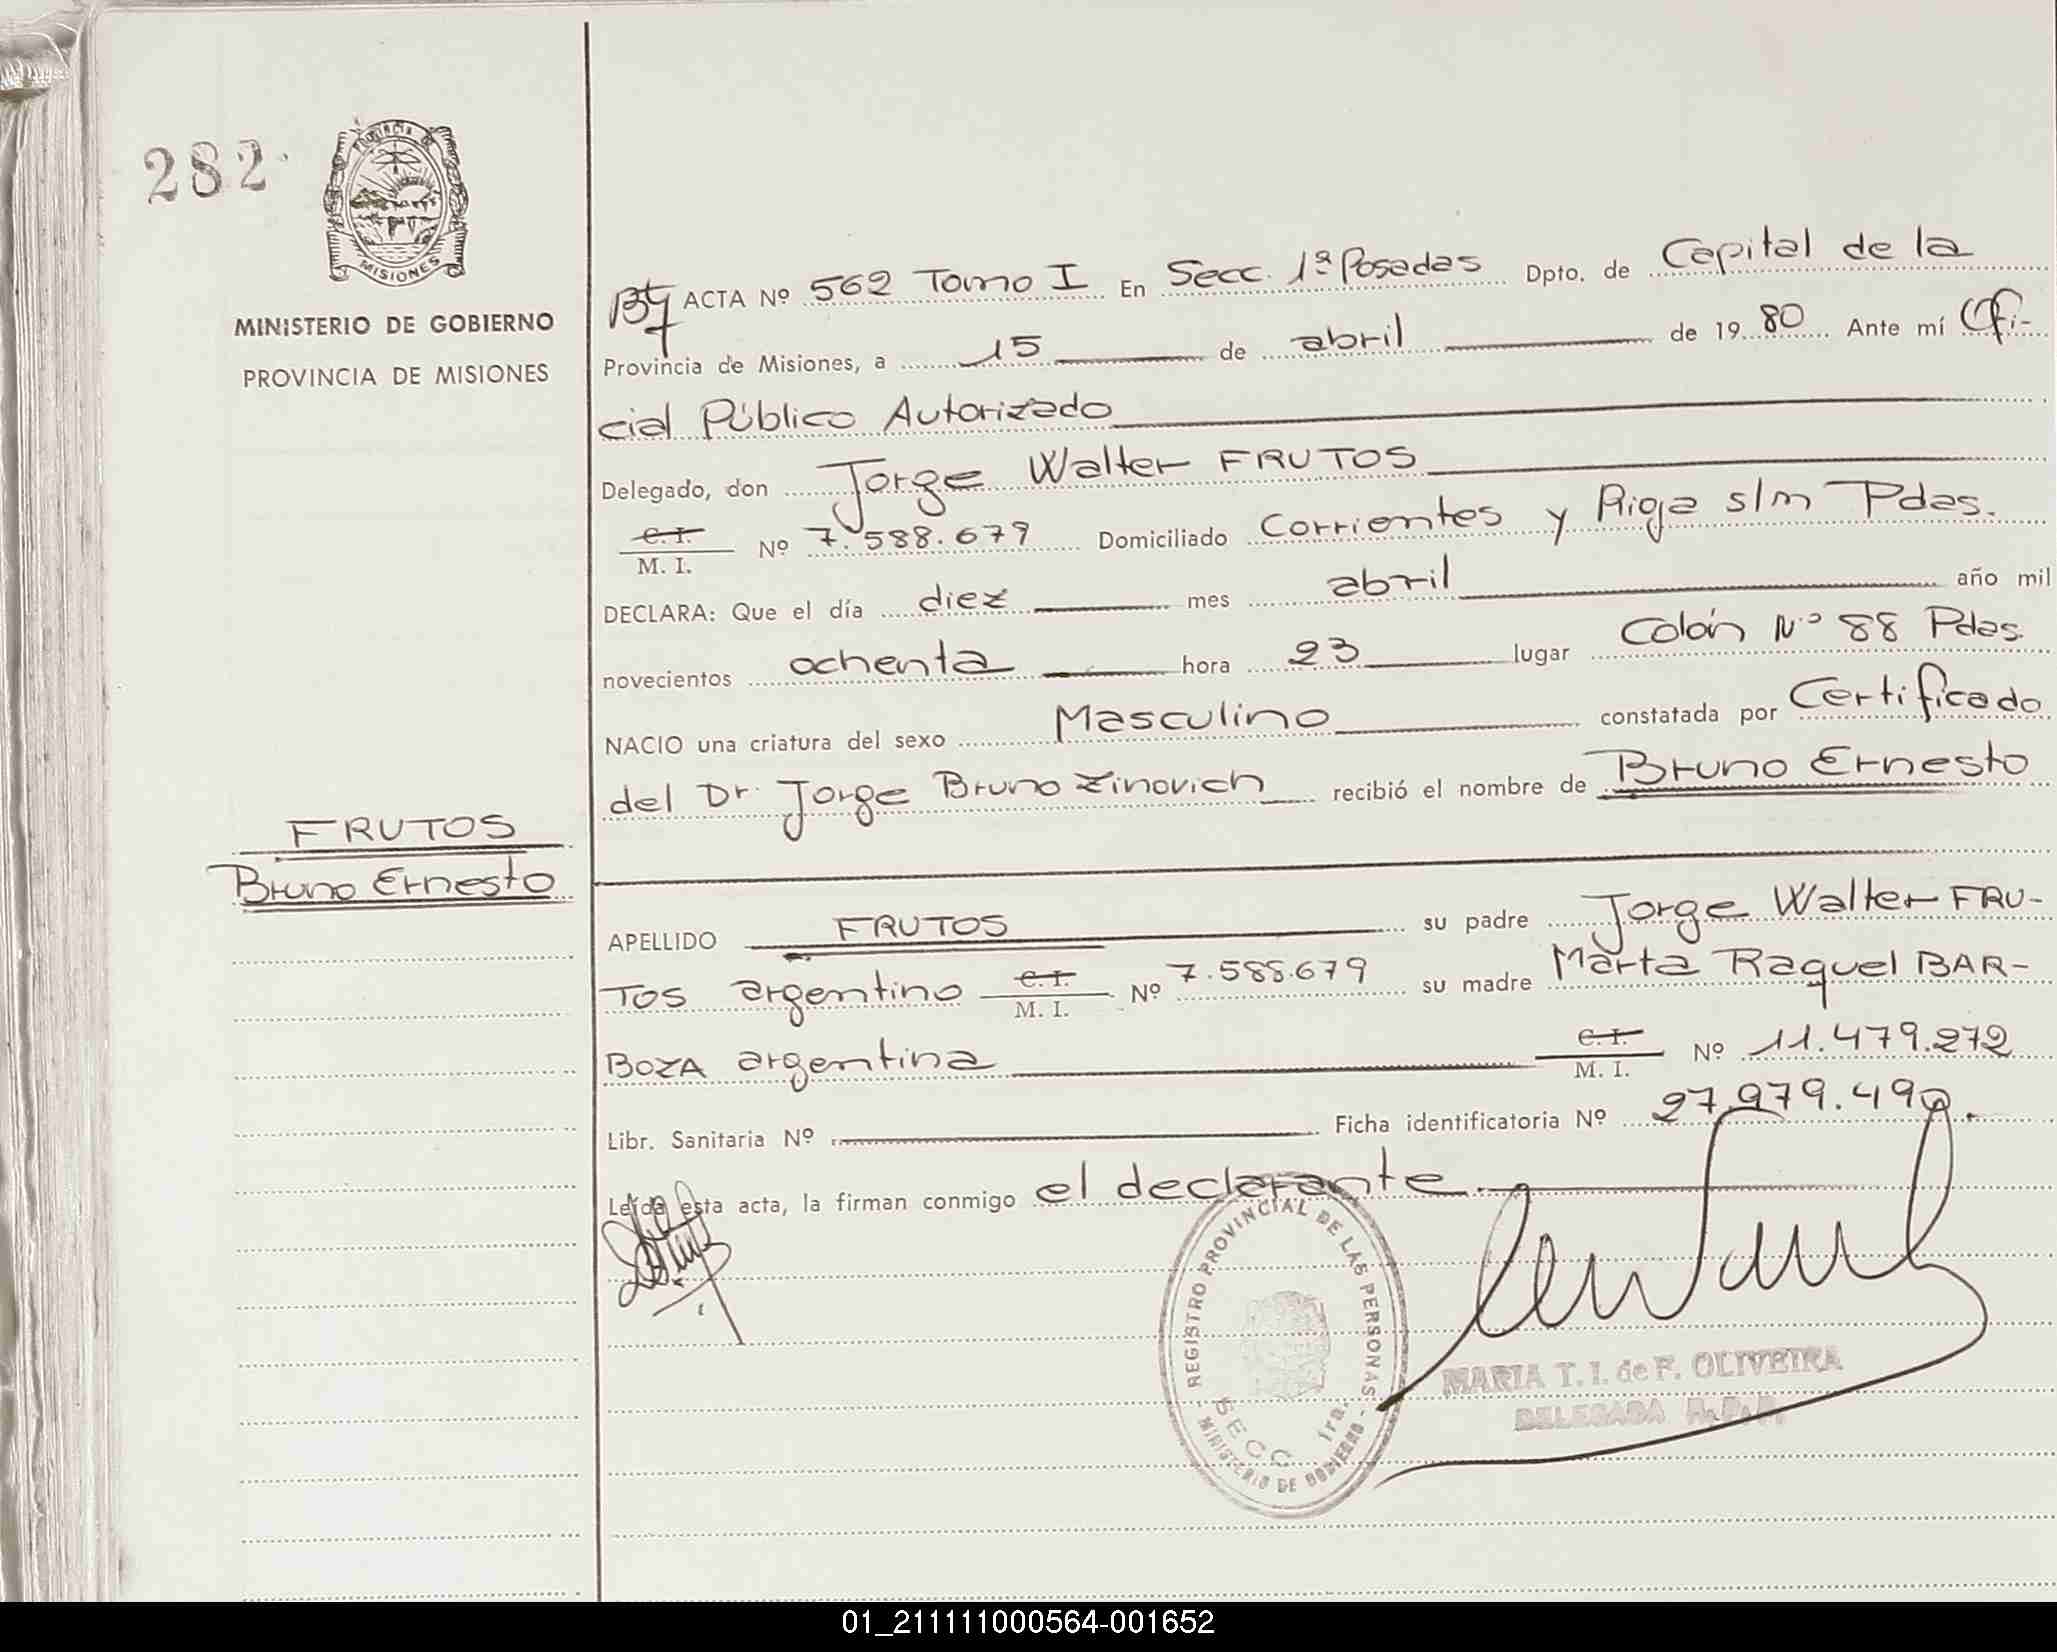 282
PROVINCIA DE
MISIONES
MINISTERIO DE GOBIERNO
PROVINCIA DE MISIONES
FRUTOS
Bruno Ernesto
ACTA Nº 562 Tomo I En Secc. 1ª Posadas Dpto. de Capital de la
Provincia de Misiones, a 15 de abril de 1980 Ante mí Ofi-
cial Público Autorizado
Delegado, don Jorge Walter FRUTOS
C. I.
M. I. Nº 7.588.679 Domiciliado Corrientes y Rioja s/m Pdas.
DECLARA: Que el día diez mes abril año mil
novecientos ochenta hora 23 lugar Colón Nº 88 Pdas.
NACIO una criatura del sexo Masculino constatada por Certificado
del Dr. Jorge Bruno Zinovich recibió el nombre de Bruno Ernesto
APELLIDO FRUTOS su padre Jorge Walter FRU-
TOS argentino C. I.
M. I. Nº 7.588.679 su madre Marta Raquel BAR-
BOZA argentina C. I.
M. I. Nº 11.479.272
Libr. Sanitaria Nº Ficha identificatoria Nº 27.979.490.
Leída esta acta, la firman conmigo el declarante
REGISTRO PROVINCIAL DE LAS PERSONAS
SECC 1ra.
- MINISTERIO DE GOBIERNO -
MARIA T. I. de F. OLIVEIRA
DELEGADA R.P.P.
01_211111000564-001652